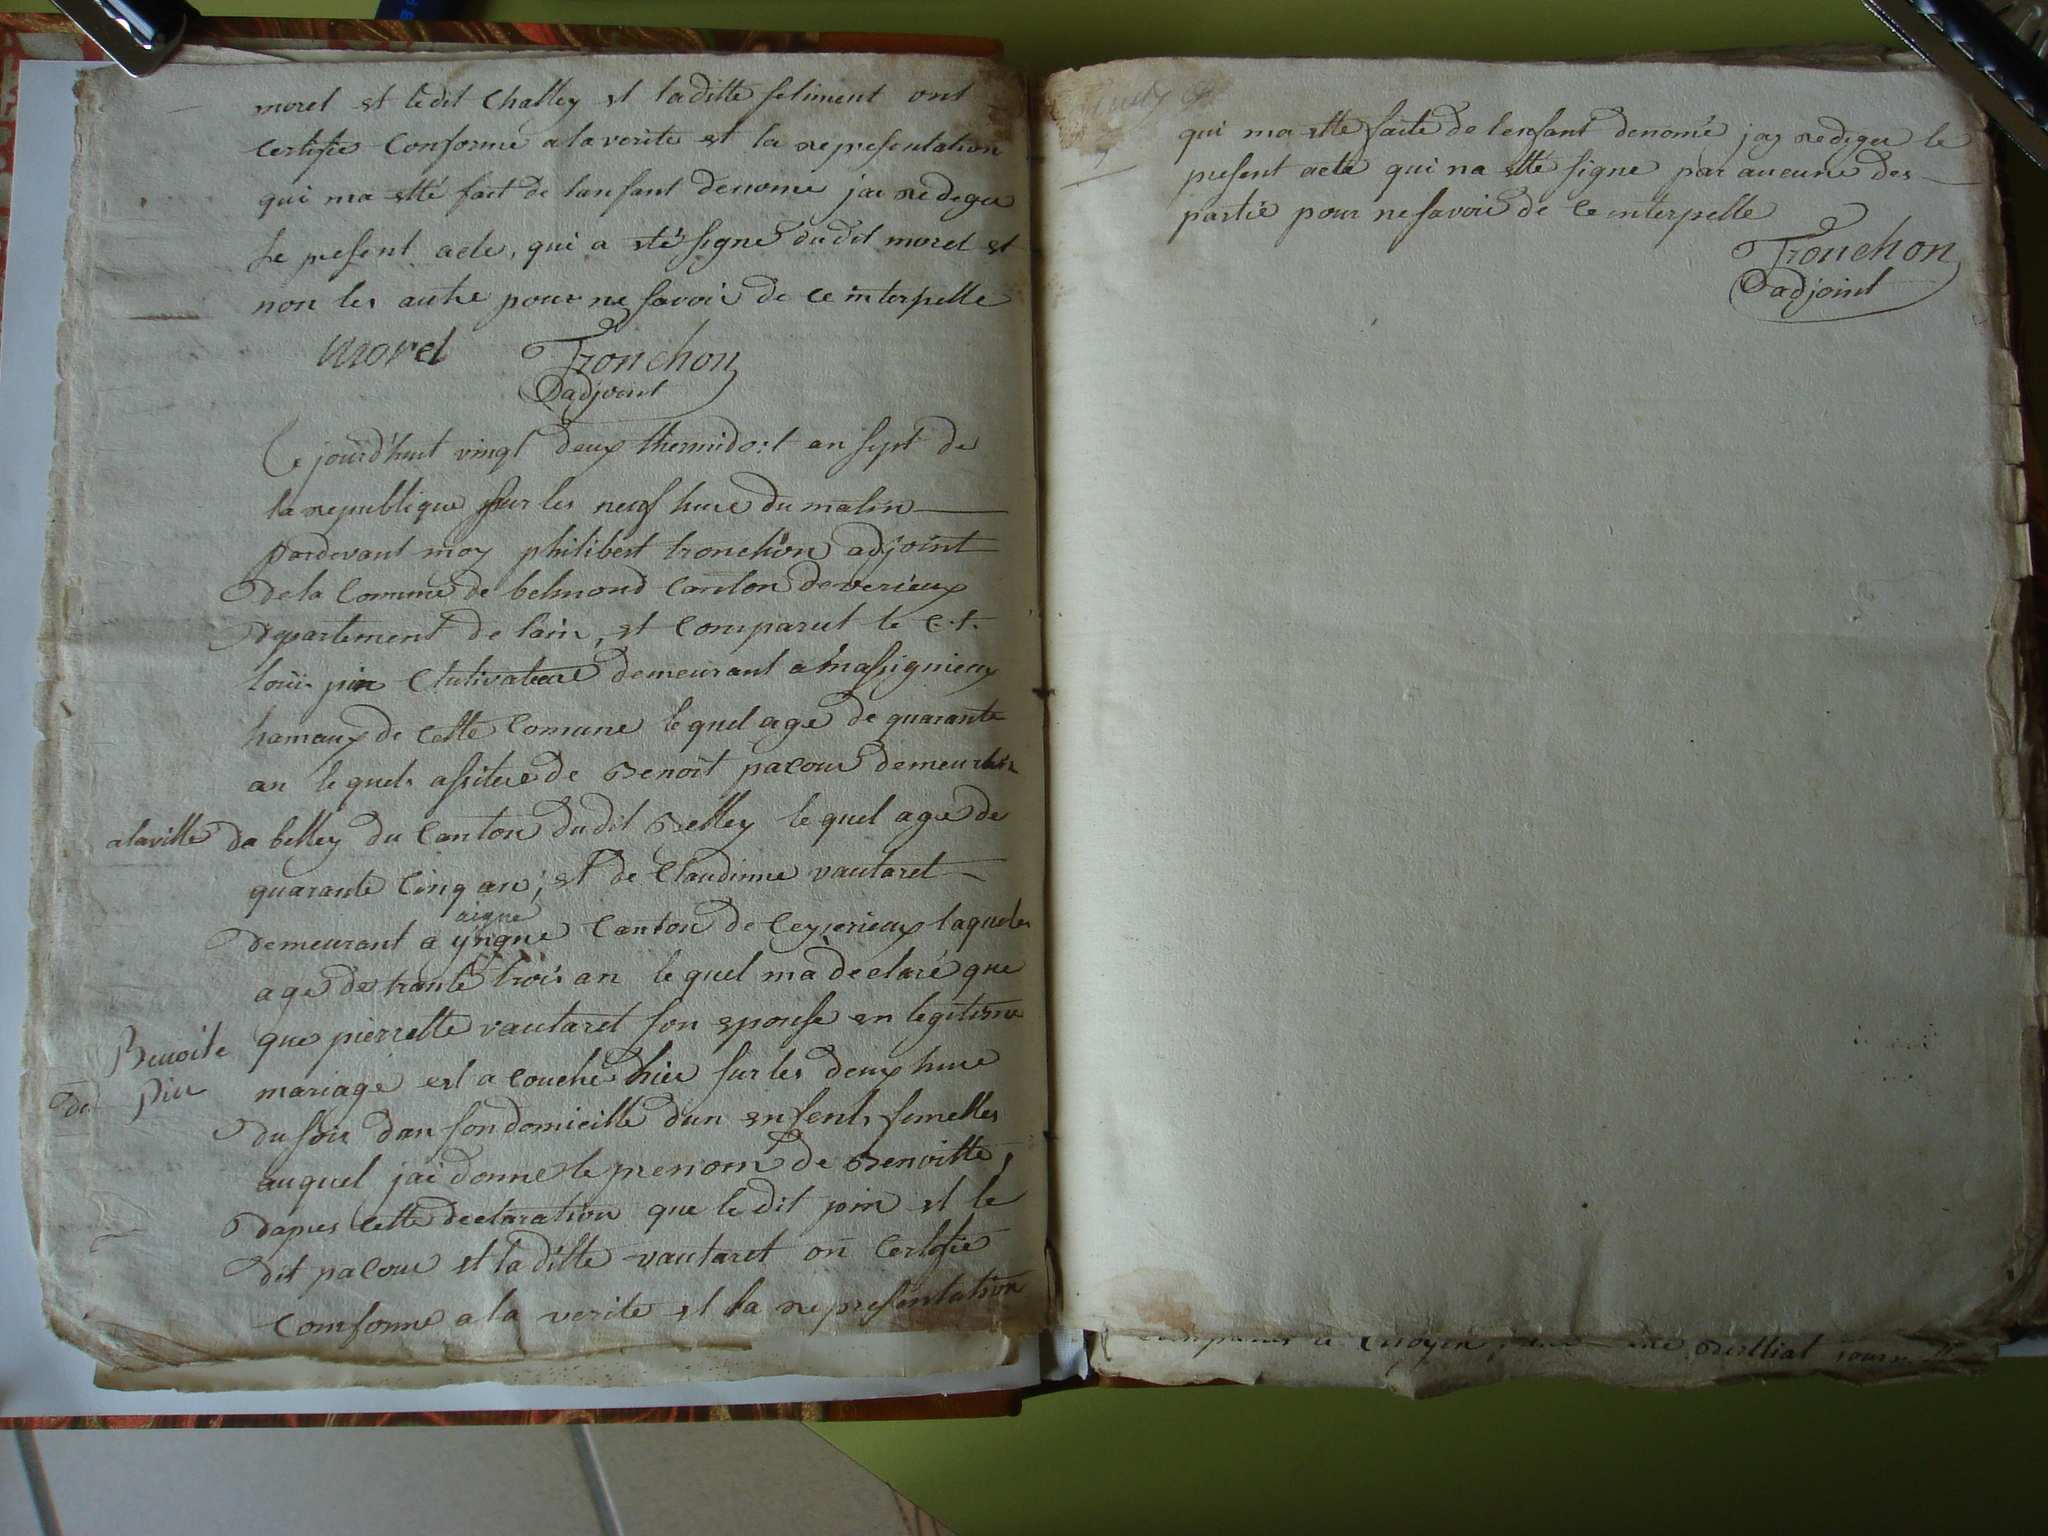 morel et ledit Challey et laditte feliment ont
certifie Conforme a la verite et la representation
qui ma etté fait de lanfant denome jai redeger
Le present acte, qui a eté signé dudit morel et
non les autre pour ne savoir de ce interpelle
morel Tronchon
adjoint
Ce jourd'huit vingt deux thermido:t an sept de
la republique sur les neuf hure du matin
pardevant moy philibert tronchon adjoint
de la Comune de belmond Canton de verieux
departement de lain, et comparut le C.t.
loüi pin Clutivateure demeurant a massignieux
hamaux de cette Comune lequel age de quarante
an lequel assitere de Benoit pacour demeuran
a la ville de belley du Canton dudit Belley lequel age de
quarante cinq an, et de Claudinne vautaret
aigne
demeurant a yngne Canton de Ceyzerieux laquele
age de trante trois an lequel ma declaré que
que pierrette vautaret son epouse en legitime
mariage est acouché hier sur les deux hure
Benoite
de Pin
du soir dan son domicille dun enfent femelles
auquel jai donne le prenom de Benoitte,
dapres cette declaration que le dit pin et le
dit pacour et la ditte vautaret on certifie
comforme a la verite et la representation
qui ma etté faite de lenfant denomé jay redeger le
present acte qui na etté signe par aucune des
partie pour ne savoir de ce interpelle
Tronchon
adjoint